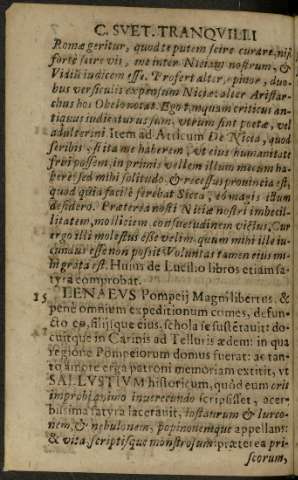 C. SVET. TRANQVILLI
Romæ geritur, quod te putem scire curare, nisi
forte scire vis, me inter Niciam nostrum, &
Vidiũ iudicem esse. Profert alter, opinor, duo-
bus versiculis expensum Niciæ: alter Aristar-
chus hos Obelo notat. Ego tanquam criticus an-
tiquus iudicaturus sum, vtrum sint poetæ, vel
adulterini. Item ad Atticum De Nicia, quod
scribis, si ita me haberem, vt eius humanitate
frui possem, in primis vellem illum mecum ha-
bere: sed mihi solitudo & recessus prouincia est,
quod quia facilè ferebat Sicca, eò magis illum
desidero. Præterea nosti Niciæ nostri imbecil-
litatem, molliciem, consuetudinem victus. Cur
ergo illi molestus esse velim, quum mihi ille iu-
cundus esse non possit. Voluntas tamen eius mi-
hi grata est. Huius de Lucilio libros etiam sa-
tyra comprobat.
15 LENAEVS Pompeij Magni libertus, &
penè omnium expeditionum comes, defun-
cto eo, filijsque eius, schola se sustētauit: do-
cuitque in Carinis ad Telluris ædem: in qua
regione Pompeiorum domus fuerat: ac tan-
to amore erga patroni memoriam extitit, vt
SALLVSTIVM historicum, quòd eum oris
improbi, animo inuerecundo scripsisset, acer-
bissima satyra lacerauit, lastaurum & lurco-
nem, & nebulonem, popinonemque appellans:
& vita, scriptisque monstrosum: præterea pri-
scorum,